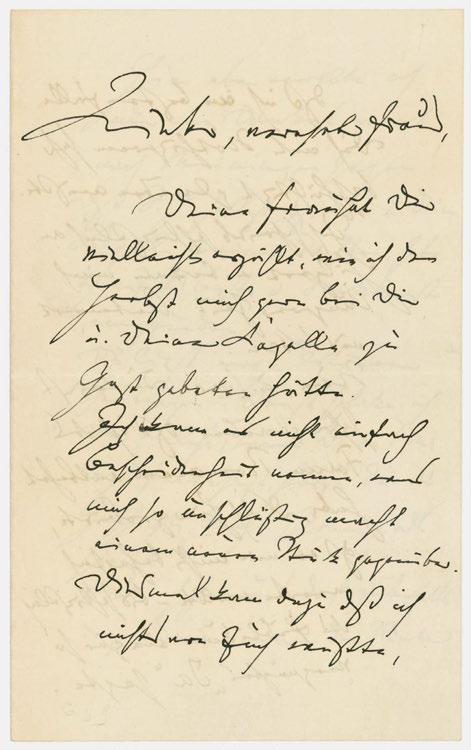 Lieber, verehrter Freund,
Deine Frau hat Dir
vielleicht erzählt, wie ich den
Herbst mich gern bei Dir
u. Deiner Kapelle zu
Gast gebeten hätte.
Ich kann es nicht einfach
Bescheidenheit nennen, was
mich so unschlüßig macht
einem neuen Stück gegenüber.
Diesmal kam dazu daß ich
nichts von Euch wußte,